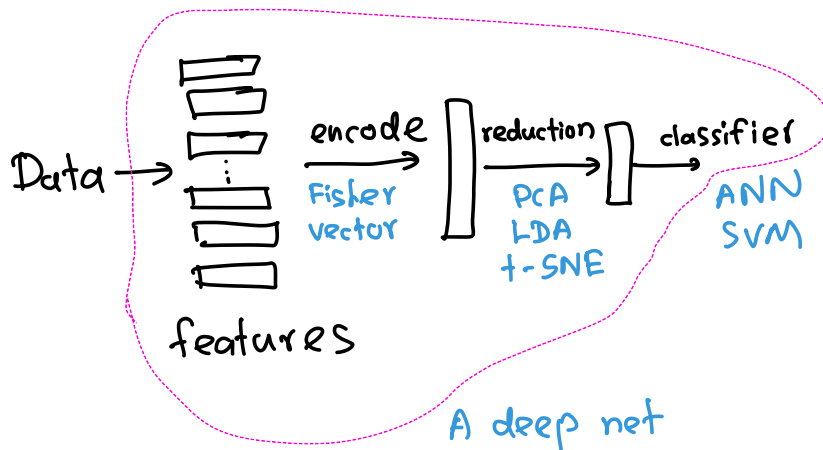 Data
features
encode
Fisher
vector
reduction
PCA
LDA
t-SNE
classifier
ANN
SVM
A deep net